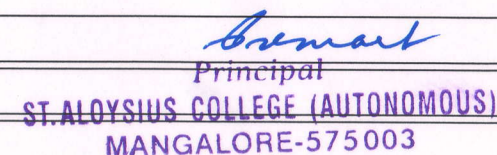 Principal
ST.ALOYSIUS COLLEGE (AUTONOMOUS)
MANGALORE-575003